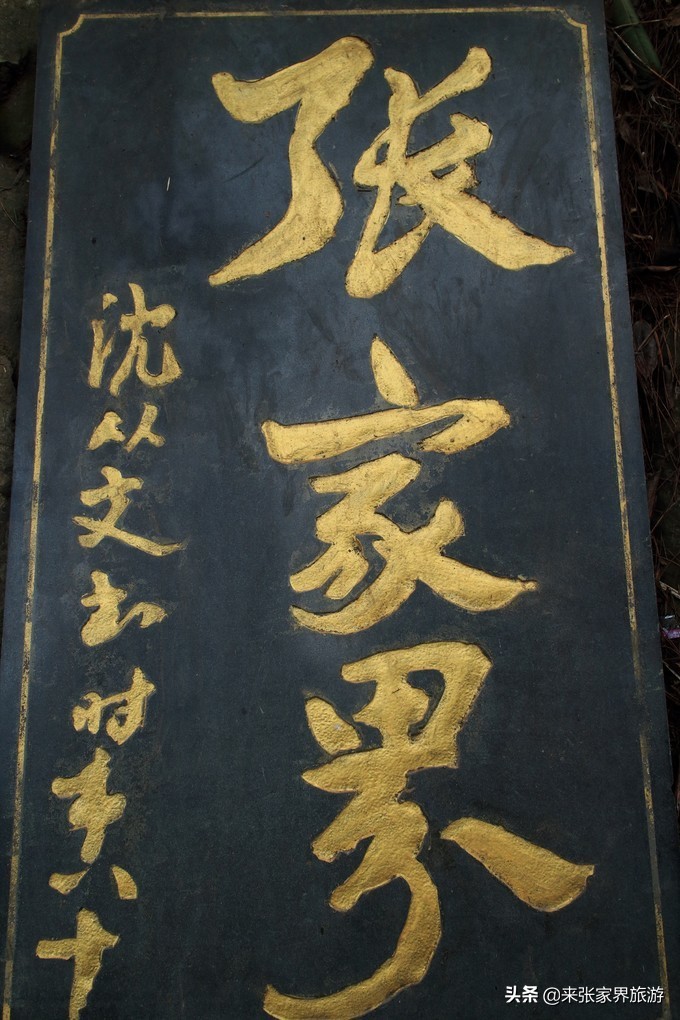 张家界
沈从文书时年八十
头条 @来张家界旅游